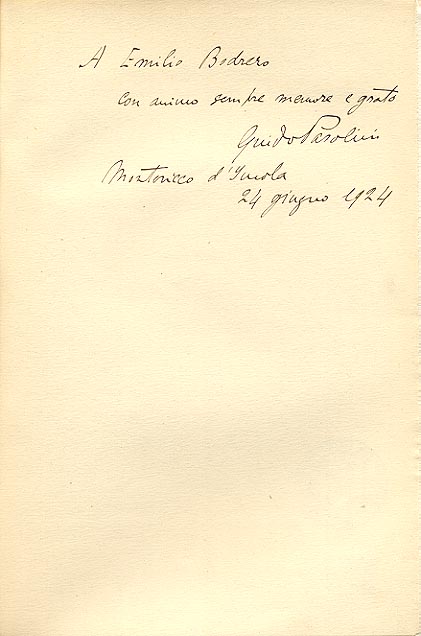 A Emilio Bodrero
con animo sempre memore e grato
Guido Pasolini
Montericco d'Imola
24 giugno 1924